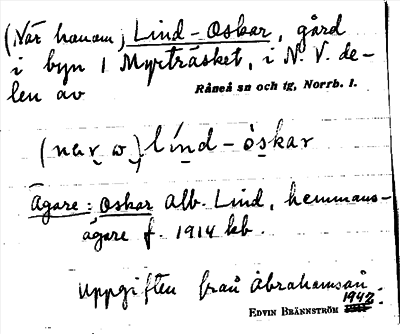 (När honom) Lind-Oskar, gård
i byn 1 Myrträsket, i N. V. de-
len av Råneå sn och tg, Norrb. l.
lı́nd-òskar
Ägare: Oskar Alb. Lind, hemmans-
ägare f. 1914 kb.
Uppgiften från Abrahamsån.
1942
EDVIN BRÄNNSTRÖM